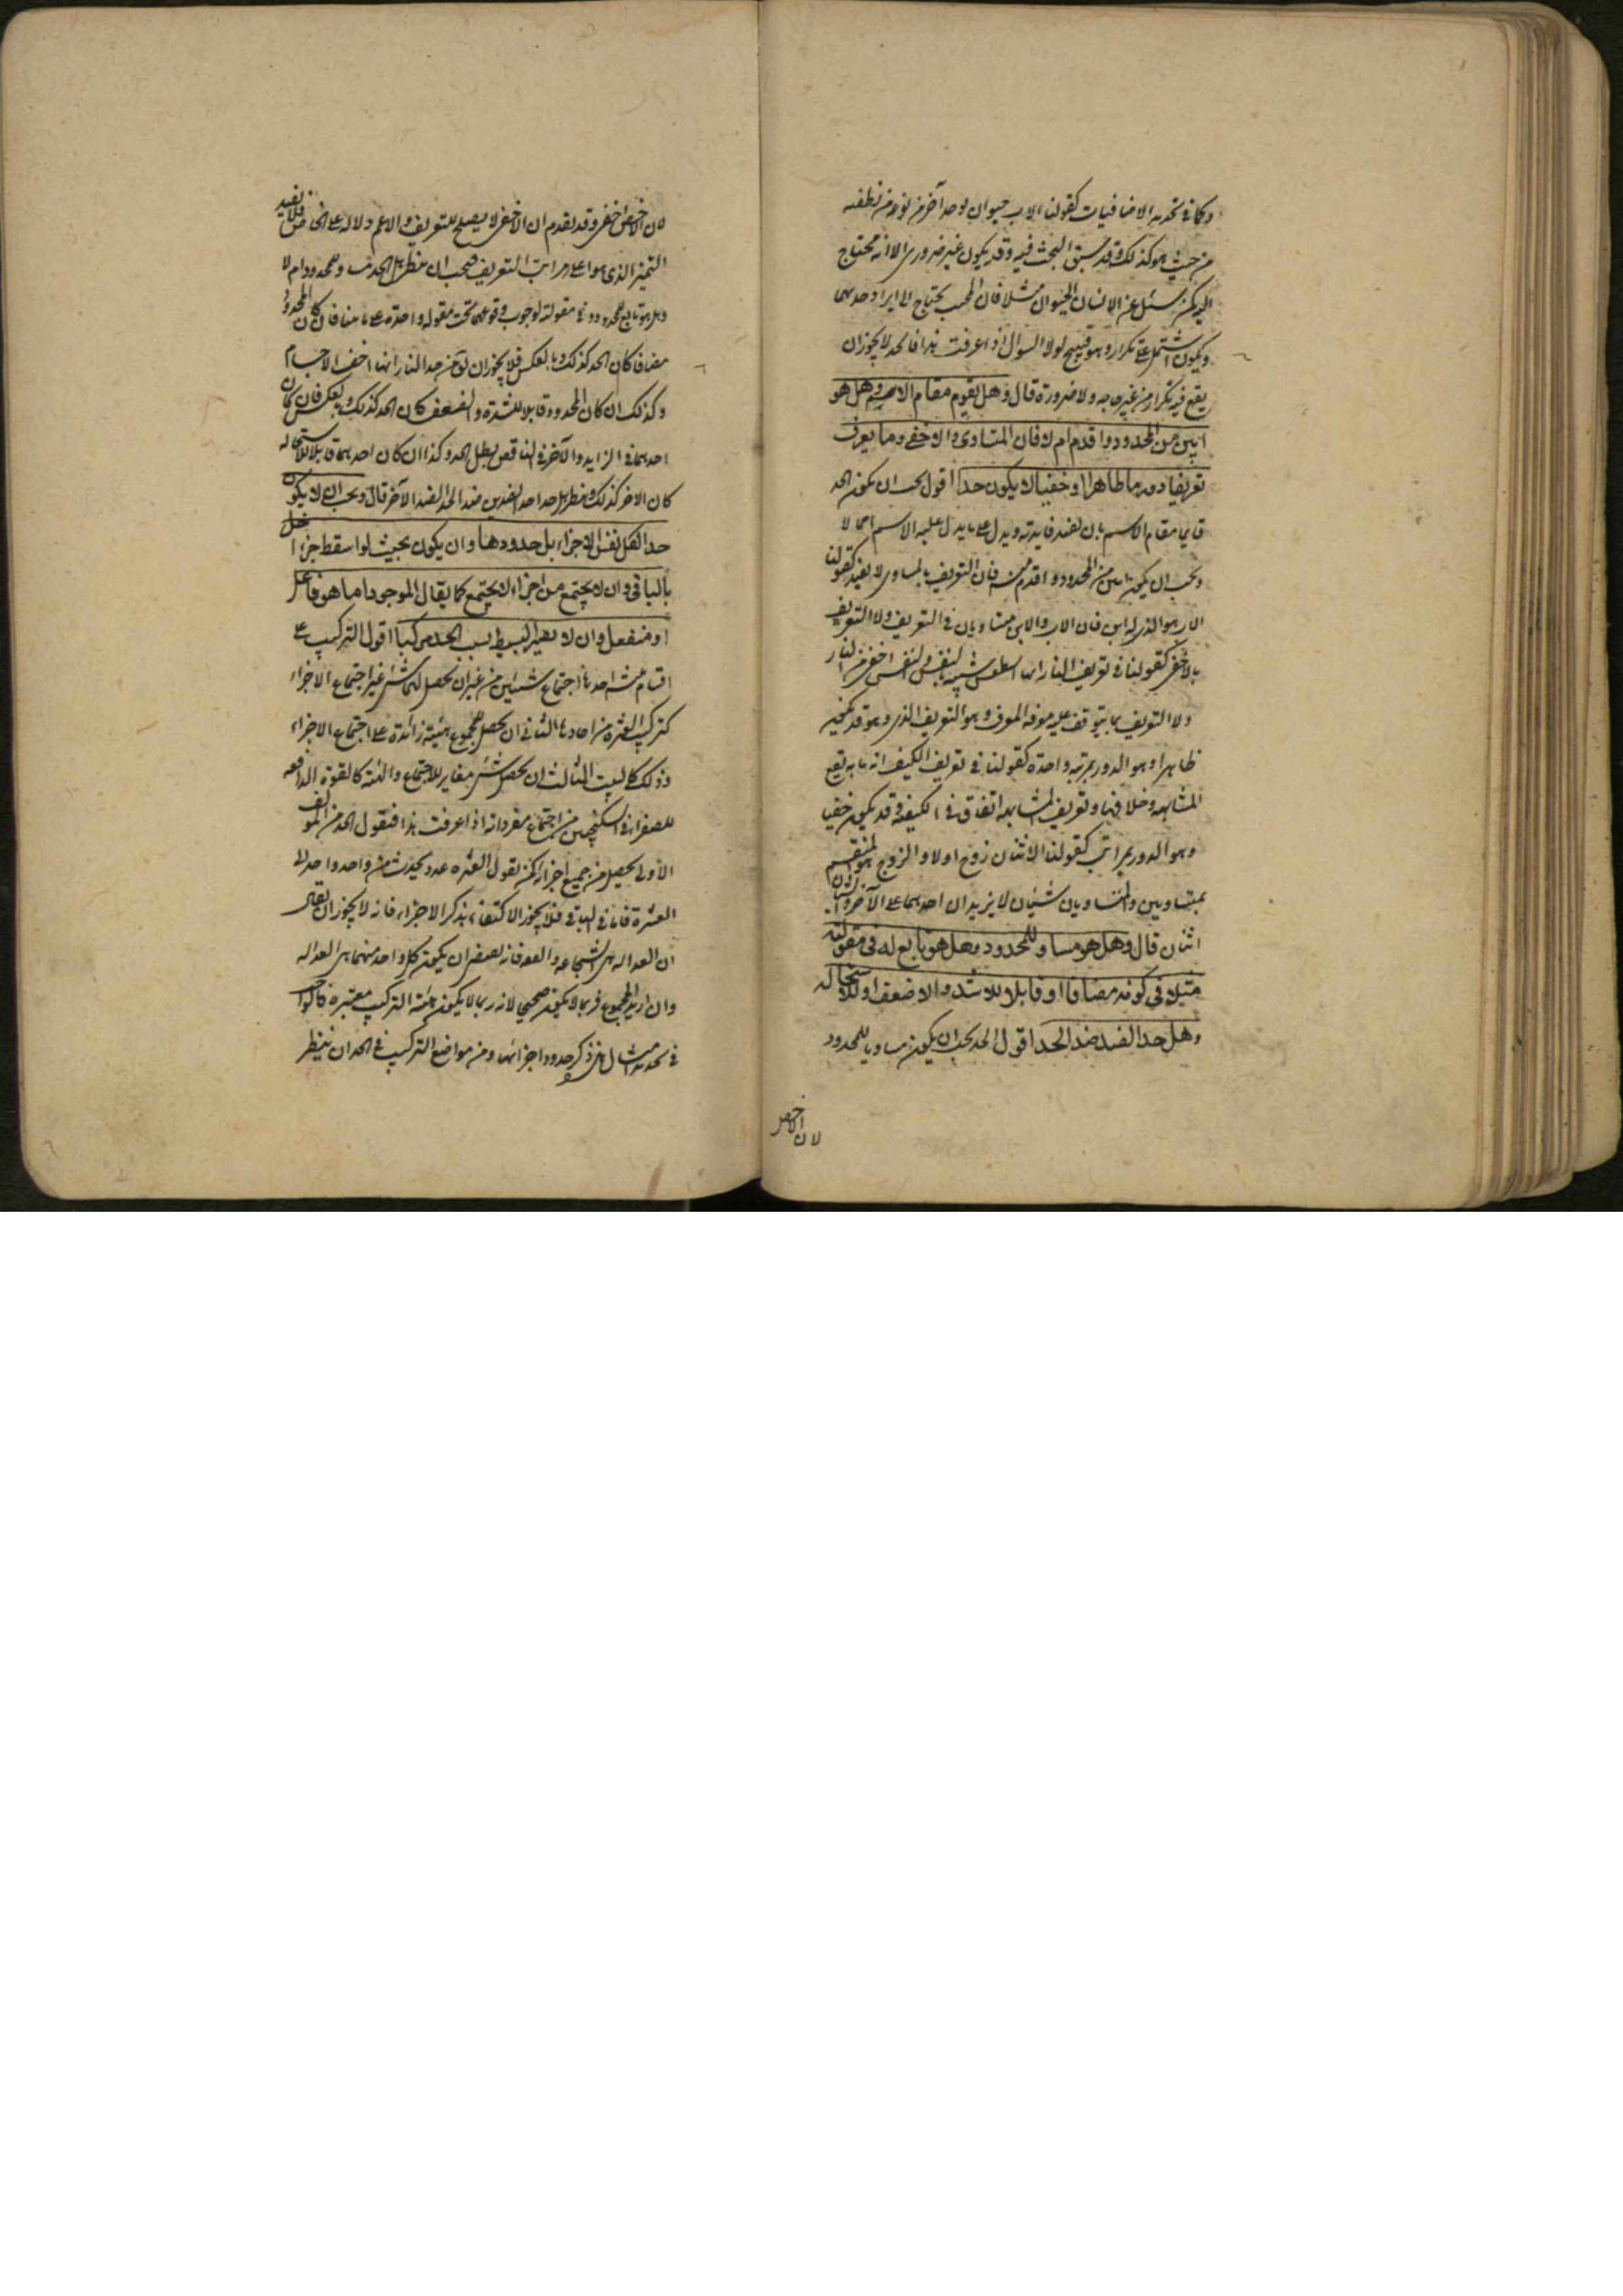 وكما في تحديد الاضافيات كقولنا الاب حيوان يوجد آخر من نوعه من نطفته
من حيث هو كذلك وقد سبق البحث فيه وقد يكون غير ضروري الا انه محتاج
اليه كمن سئل عن الانسان الحيوان مثلا فان المجيب يحتاج الى ايراد حديهما
ويكون اشتمل على تكرار وهو قبيح لولا السؤال اذا عرفت هذا فالحد لا يجوز ان
يقع فيه تكرار من غير حاجه ولا ضرورة قال وهل يقوم مقام الاسم وهل هو
ابين من المحدود واقدم ام لا فان المتساوى والاخفى وما يعرف
تعريفا دوريا ظاهرا او خفيا لا يكون حدا اقول يجب ان يكون الحد
قايما مقام الاسم بان يفيد فايدته ويدل على ما يدل عليه الاسم اجمالا
ويجب ان يكون ابين من المحدود واقدم منه فان التعريف بالمساوى لا يفيد كقولنا
الاب هو الذى له ابن فان الاب والابن متساويان في التعريف ولا التعريف
بالاخفى كقولنا في تعريف النار انها اسطقس شبيه بالنفس والنفس اخفى من النار
ولا التعريف بما يتوقف عليه معرفة المعرف وهو التعريف الدورى وهو قد يكون
ظاهرا وهو الدور بمرتبه واحدة كقولنا في تعريف الكيف انه ما به يقع
المشابهه وخلافها وتعريف المشابهه اتفاق في الكيفية وقد يكون خفيا
وهو الدور بمراتب كقولنا الاثنان زوج اول والزوج هو المنقسم
بمتساويين والمتساويان شيئان لا يزيد ان احدهما على الآخر والشيئان
اثنان قال وهل هو مساو للمحدود وهل هو تابع له فى مقولته
مثلا فى كونه مضافا او قابلا للاشد والاضعف او للاستحاله
وهل حد الضد ضد الحد اقول الحد يجب ان يكون مساويا للمحدود
لان الاخص
لان الاخص اخفى وقد تقدم ان الاخفى لا يصلح للتعريف والاعم دلاله على الخاص فلا يفيد
التميز الذى هو اعلى مراتب التعريف فيجب ان ينظر هل الحد مساو للمحدود ام لا
وهل هو تابع للمحدود في مقولته لوجوب وقوعهما تحت مقوله واحدة على ما مضى فان كان المحدود
مضافا كان الحد كذلك وبالعكس فلا يجوز ان يؤخذ في حد النار انها اخف الاجسام
وكذلك ان كان المحدود قابلا للشدة والضعف كان الحد كذلك وبالعكس فان كان
احدهما في الزايد والآخر في الناقص بطل الحد وكذا ان كان احدهما قابلا للاستحاله
كان الاخر كذلك وينظر هل حد احد الضدين ضد الحد للضد الآخر قال ويجب ان لا يكون
حد الكل نفس الاجزاء بل حدودها وان يكون بحيث لو اسقط جزء اخل
بالباقى وان لا يجتمع من اجزاء لا يجتمع كما يقال الموجود اما هو فاعل
او منفعل وان لا يصير البسيط بسبب الحد مركبا اقول التركيب على
اقسام ثلثه احدها اجتماع شيئين من غير ان يحصل لهما شئ غير اجتماع الاجزاء
كتركيب العشرة من احادها الثانى ان يحصل للمجموع هيئة زائدة على اجتماع الاجزاء
وذلك كالبيت الثالث ان يحصل شئ مغاير للاجتماع والهيئة كالقوة الدافعه
للصفراء في السكنجبين من اجتماع مفرداته اذا عرفت هذا فنقول الحد من المؤلف
الاول يحصل من جميع اجزائه كمن يقول العشره عدد يحدث من واحد واحد الى
العشرة فاما في الباقى فلا يجوز الاكتفاء بذكر الاجزاء فانه لا يجوز ان يقال
ان العداله هى الشجاعه والعفه فانه يقتضى ان يكون كل واحد منهما هى العداله
وان اريد المجموع فربما لا يكون صحيحا لانه ربما لا يكون هيئة التركيب معتبرة
في تحديد امثال هذه ذكر حدود اجزائها ومن مواضع التركيب في الحد ان ينظر